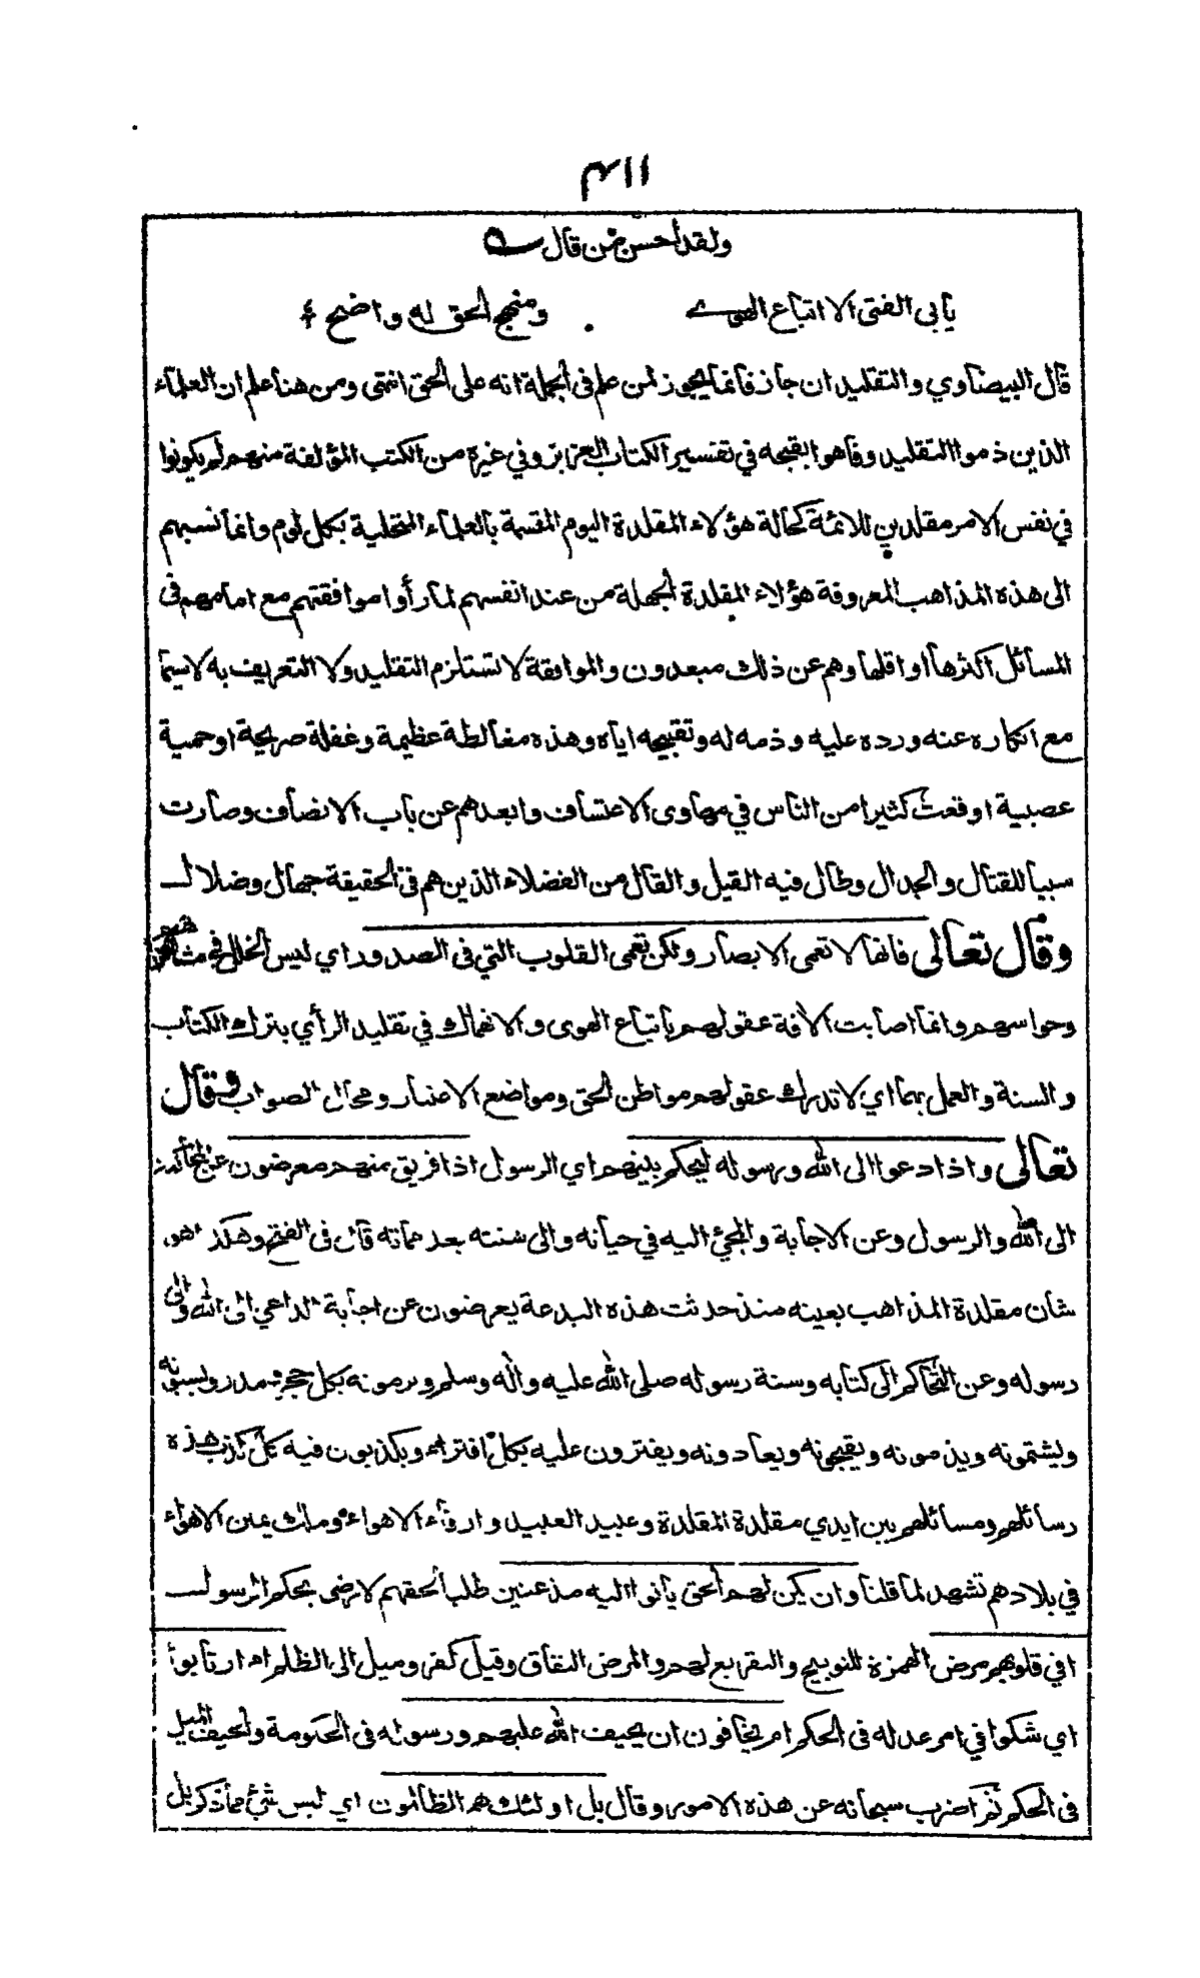 ١١٣
ولقد أحسن من قال
يأبى الفتى الا اتباع الهوى ومنهج الحق له واضح
قال البيضاوي والتقليد ان جاز فانما يجوز لمن علم في الجملة انه على الحق انتهى ومن هنا علم ان العلماء
الذين ذموا التقليد وفاهوا بقبحه في تفسير الكتاب العزيز وفي غيره من الكتب المؤلفة منهم لم يكونوا
في نفس الامر مقلدين للائمة كحالة هؤلاء المقلدة اليوم المتسمة بالعلماء المتحلية بكل لوم وانما نسبهم
الى هذه المذاهب المعروفة هؤلاء المقلدة الجهلة من عند انفسهم لما رأوا موافقتهم مع امامهم في
المسائل اكثرها او اقلها وهم عن ذلك مبعدون والموافقة لا تستلزم التقليد ولا التعريف به لا سيما
مع انكاره عنه ورده عليه وذمه له وتقبيحه اياه وهذه مغالطة عظيمة وغفلة صريحة او حمية
عصبية اوقعت كثيرا من الناس في مهاوى الاعتساف وابعدهم عن باب الانصاف وصارت
سببا للقتال والجدال وطال فيه القيل والقال من الفضلاء الذين هم في الحقيقة جهال وضلال
وقال تعالى فانها لا تعمى الابصار ولكن تعمى القلوب التي في الصدور اي ليس الخلل في مشاعرهم
وحواسهم وانما اصابت الافة عقولهم باتباع الهوى والانهماك في تقليد الرأي بترك الكتاب
والسنة والعمل بهما اي لا تدرك عقولهم مواطن الحق ومواضع الاعتبار ومحال الصواب وقال
تعالى واذا دعوا الى الله ورسوله ليحكم بينهم اي الرسول اذا فريق منهم معرضون عن المحاكمة
الى الله والرسول وعن الاجابة والمجيئ اليه في حياته والى سنته بعد مماته قال في الفتح وهكذا هو
شان مقلدة المذاهب بعينه منذ حدثت هذه البدعة يعرضون عن اجابة الداعي الى الله والى
رسوله وعن التحاكم الى كتابه وسنة رسوله صلى الله عليه واله وسلم ويرمونه بكل حجر ومدر ويسبونه
ويشتمونه ويذمونه ويقبحونه ويعادونه ويفترون عليه بكل افتراء ويكذبون فيه كل كذب هذه
رسائلهم ومسائلهم بين ايدي مقلدة المقلدة وعبيد العبيد وارقاء الاهواء وملك يمين الاهواء
في بلادهم تشهد لما قلنا وان يكن لهم الحق يأتوا اليه مذعنين طلبا لحقهم لا رضى بحكم الرسول
افي قلوبهم مرض الهمزة للتوبيخ والتقريع لهم والمرض النفاق وقيل كفر وميل الى الظلم ام ارتابوا
اي شكوا في امر عدله في الحكم ام يخافون ان يحيف الله عليهم ورسوله في الحكومة والحيف الميل
في الحكم ثم اضرب سبحانه عن هذه الامور وقال بل اولئك هم الظالمون اي ليس شئ مما ذكر بل